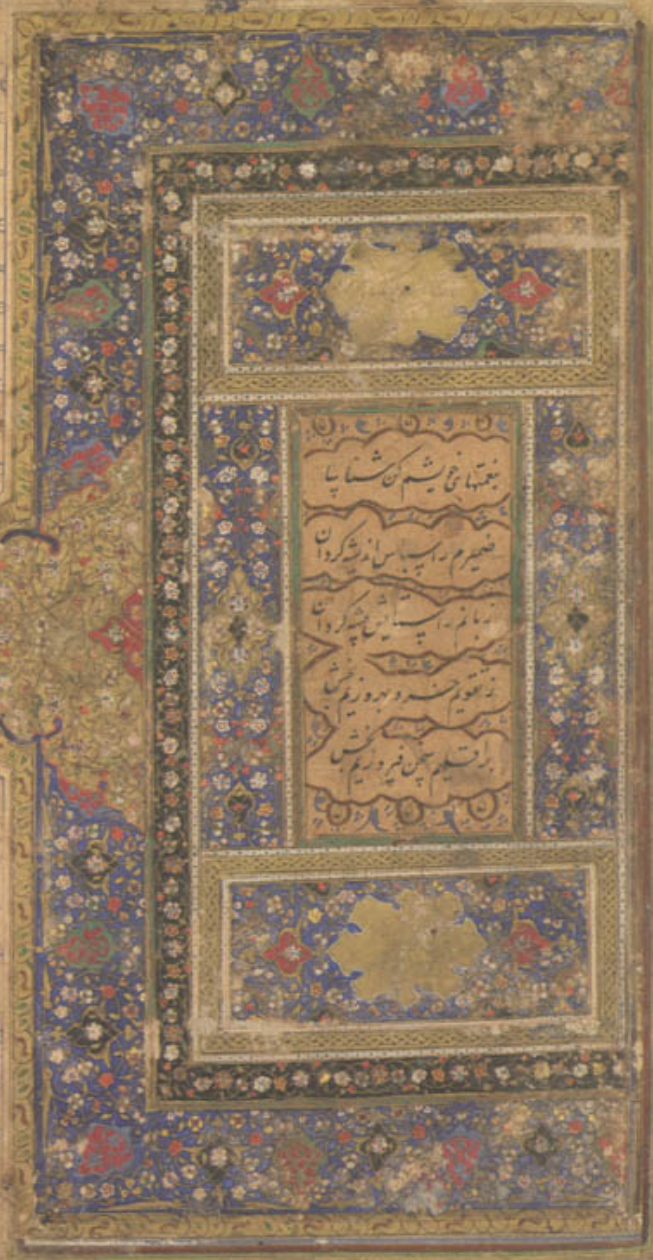 بنعمتهای خویشم کن شناسا
ضمیرم را سپاس اندیشه گردان
زبانم را ستایش پیشه گردان
ز تقویم خرد بهروزیم بخش
بر اقلیم سخن فیروزیم بخش